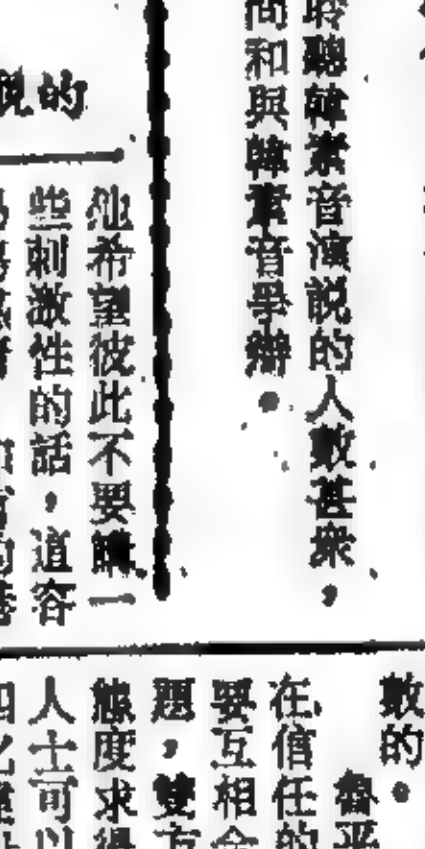 聆聽韓素音演説的人數甚衆，
問和與韓素音爭辯。
觀的
他希望彼此不要講一
些刺激性的話，這容
數的。
魯平
在信任的
要互相合
題，雙方
態度求得
人士可以